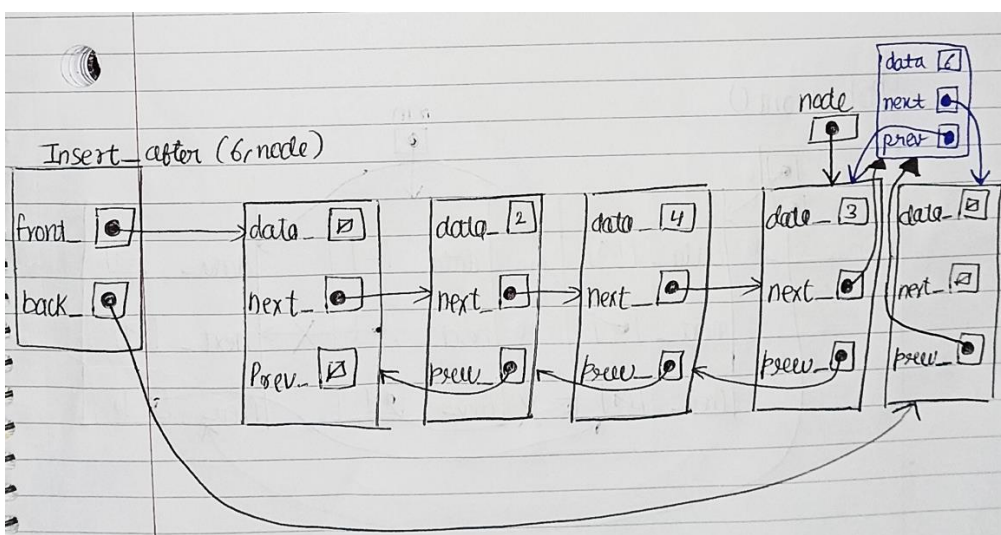 Insert_after (6, node)
node
data 6
next
prev
front_
back_
data_ ∅
next_
Prev_ ∅
data_ 2
next_
prev_
data_ 4
next_
prev_
data_ 3
next_
prev_
data_ ∅
next_ ∅
prev_